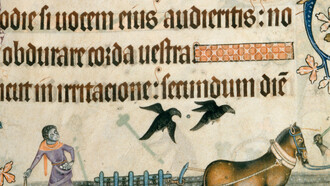 odie si uocem eius audieritis : no
obdurare corda uestra
in irritacione : secundum diē